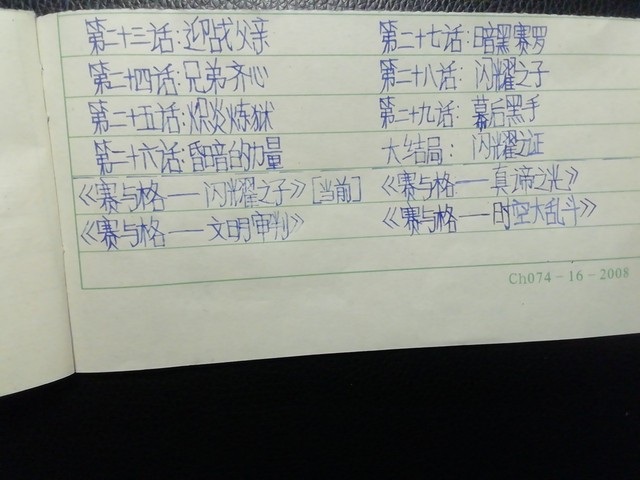 第二十三话:迎战父亲
第二十四话:兄弟齐心
第二十五话:炽炎炼狱
第二十六话:昏暗的力量
《赛与格——闪耀之子》[当前]
《赛与格——文明审判》
第二十七话:暗黑赛罗
第二十八话: 闪耀之子
第二十九话: 幕后黑手
大结局: 闪耀之证
《赛与格——真谛之光》
《赛与格——时空大乱斗》
Ch074-16-2008